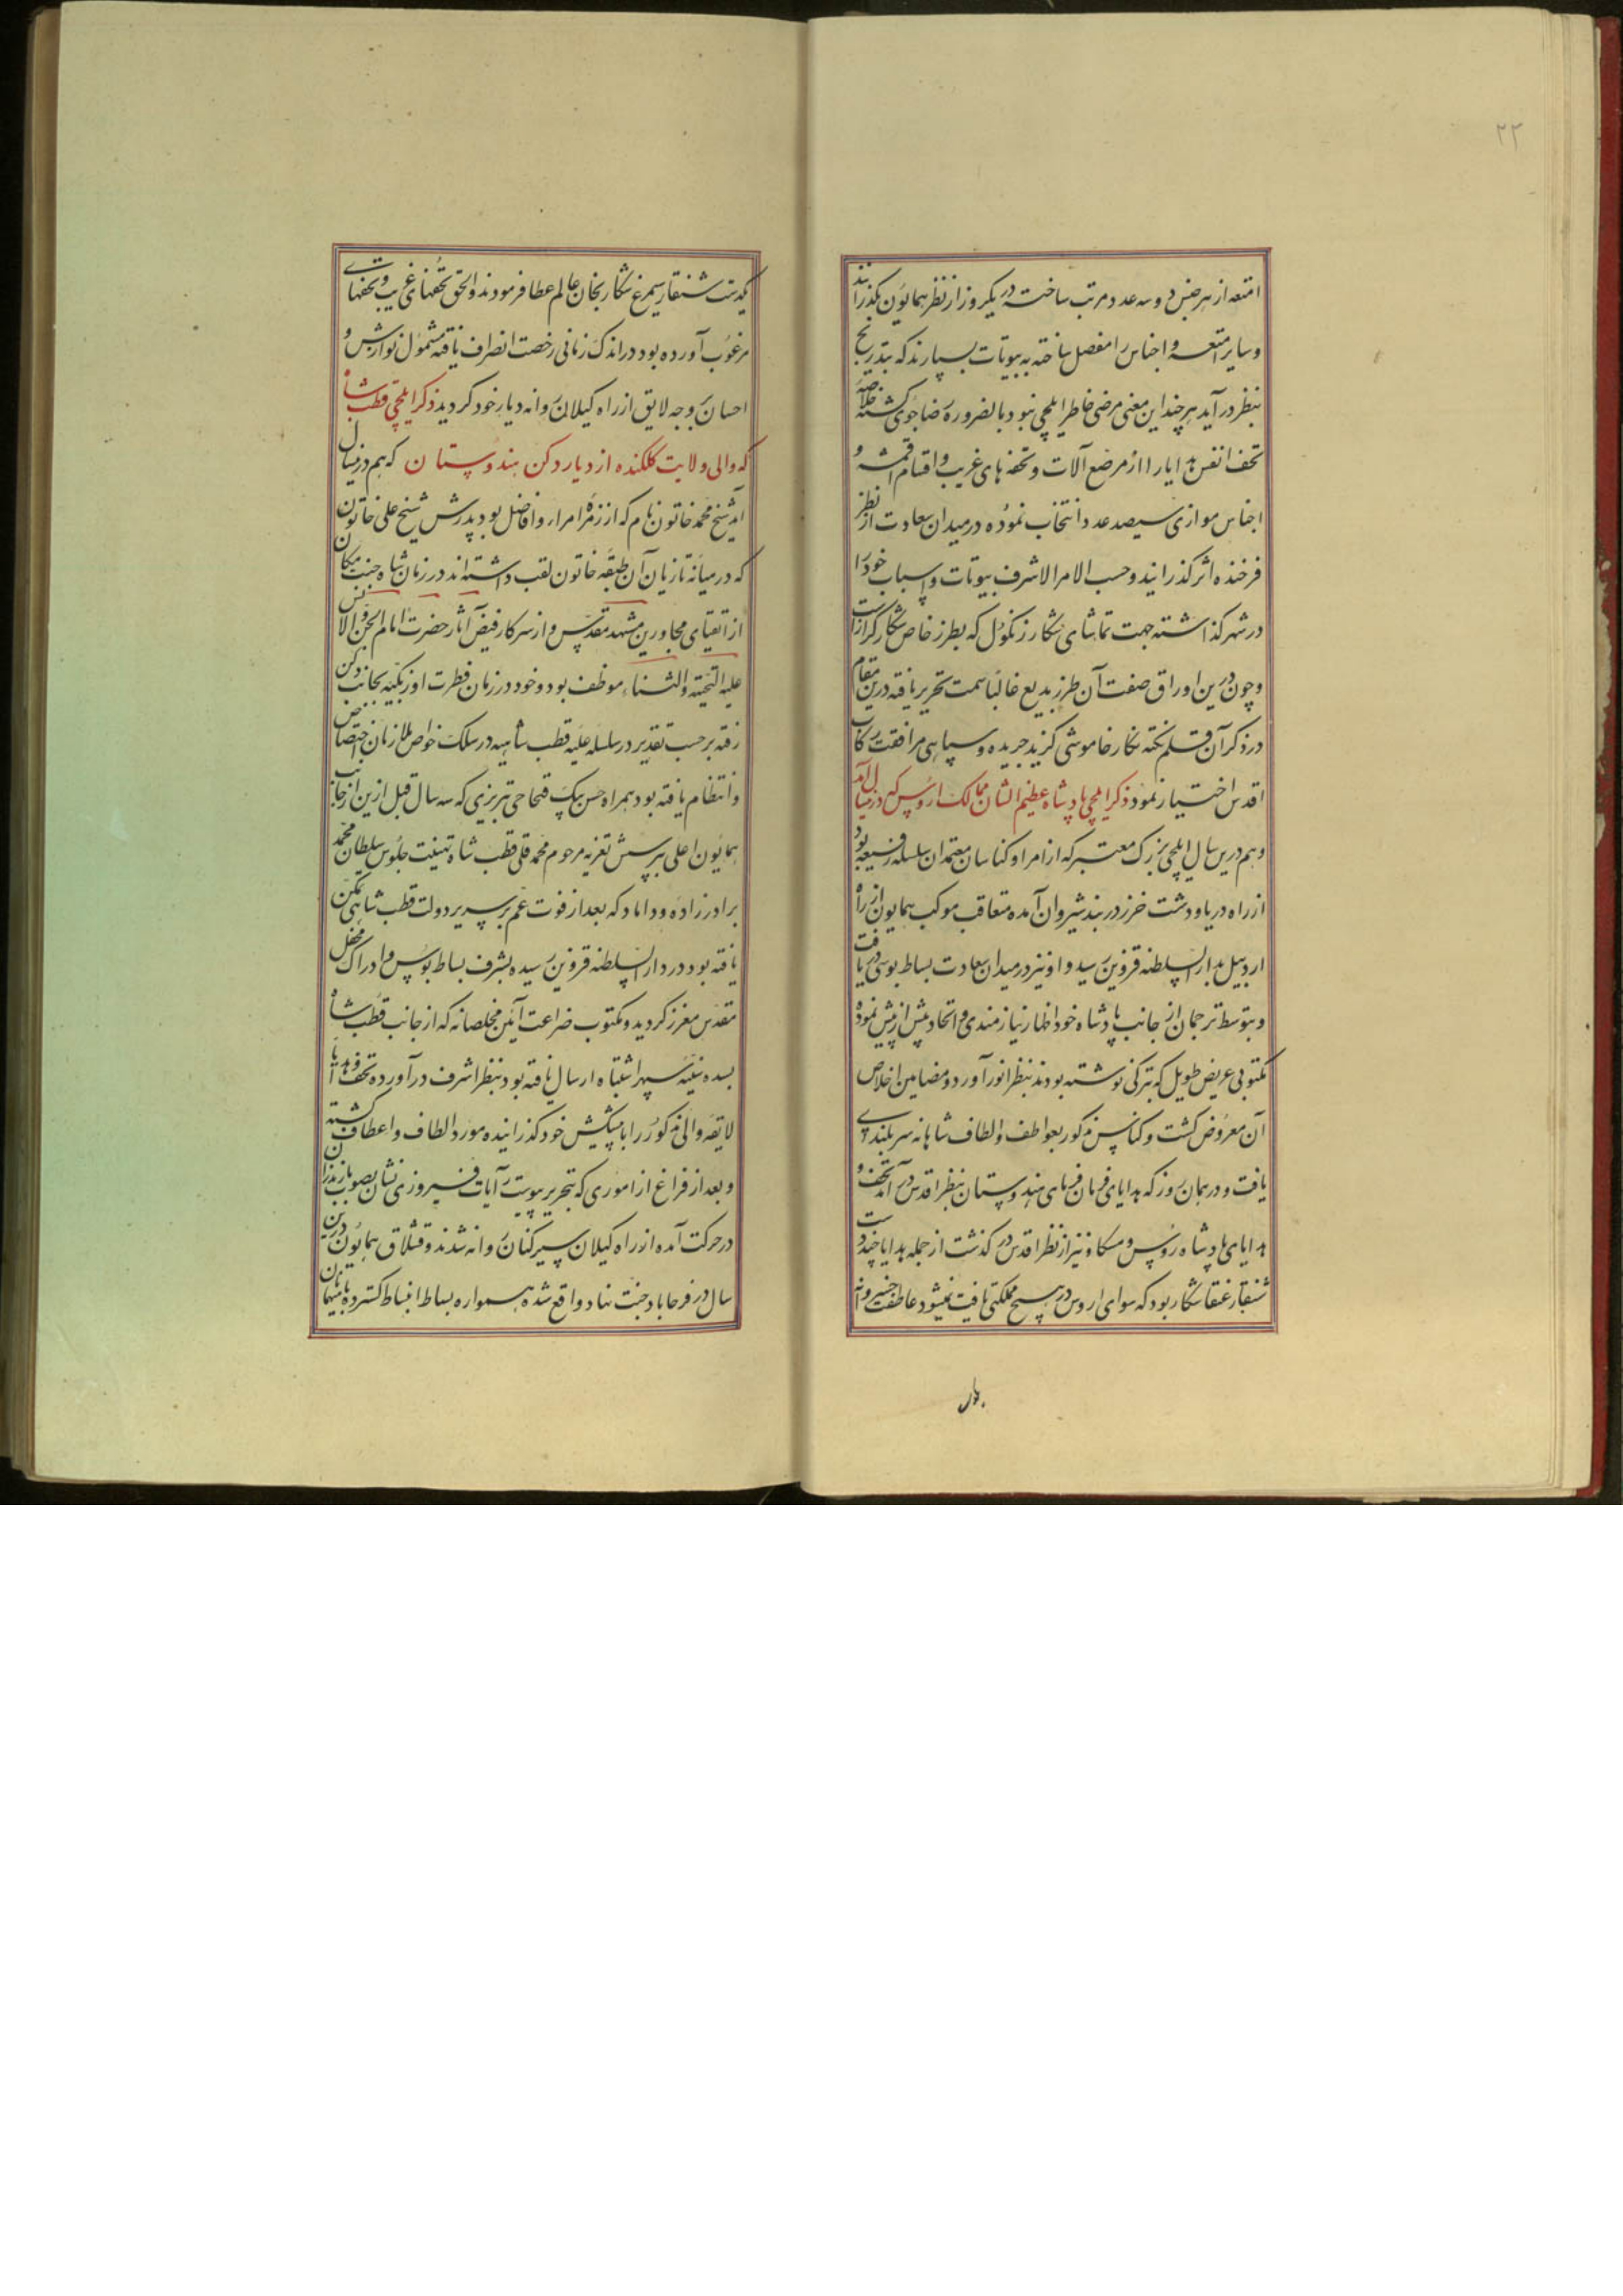 ۲۲
امتعه از هر جنس دو سه عدد مرتب ساخته در یکروز از نظر همایون بگذرانند
و سایر امتعه و اجناس را مفصل ساخته به بیوتات بسپارند که بتدریج
بنظر در آید هر چند این معنی مرضی خاطر ایلچی نبود بالضروره رضا جوی گشته خلاصه
تحف انفس هدایا را از مرصع آلات و تحفه های غریب و اقسام اقمشه و
اجناس موازی سیصد عدد انتخاب نموده در میدان سعادت از نظر
فرخنده اثر گذرانید و حسب الامر الاشرف بیوتات و اسباب خود را
در شهر گذاشته جهت تماشای شکار زنگول که بطرز خاص شکار گرازست
و چون درین اوراق صفت آن طرز بدیع غالبا سمت تحریر یافته درین مقام
در ذکر آن قلم نکته نگار خاموشی گزید جریده و سپاهی مرافقت رکاب
اقدس اختیار نمود ذکر ایلچی پادشاه عظیم الشان ممالک اروس که درین سال آمد
و هم درین سال ایلچی بزرگ معتبر که از امرا و کناسان معتمدان سلسله رفیعه بود
از راه دریا و دشت خزر در بند شیروان آمده متعاقب موکب همایون از راه
اردبیل بدار السلطنه قزوین رسید و او نیز در میدان سعادت بساط بوسی دریافت
و بتوسط ترجمان از جانب پادشاه خود اظهار نیازمندی و اتحاد بیش از پیش نموده
مکتوبی عریض طویل که بترکی نوشته بودند بنظر انور آورد و مضامین اخلاص
آن معروض گشت و کناس مذکور بعواطف و الطاف شاهانه سربلندی
یافت و در همان روز که هدایای فرمان فرمای هندوستان بنظر اقدس در آمد تحف و
هدایای پادشاه روس و مسکاو نیز از نظر اقدس در گذشت از جمله هدایا چند دست
شنقار عنقا شکار بود که سوای اروس در هیچ مملکتی یافت نمیشود عاطفت خسروانه
یکدست شنقار سیمرغ شکار بخان عالم عطا فرمودند و الحق تحفهای غریب و تحفهای
مرغوب آورده بود در اندک زمانی رخصت انصراف یافته مشمول نوازش و
احسان بر وجه لایق از راه گیلان روانه دیار خود گردید ذکر ایلچی قطب شاه
که والی ولایت گلکنده از دیار دکن هندوستان که هم درین سال
آمد شیخ محمد خاتون نام که از زمره امرار و افاضل بود پدرش شیخ علی خاتون
که در میانه تازیان آن طبقه خاتون لقب داشته اند در زمان شاه جنت مکان
از اتقیای مجاورین مشهد مقدس و از سرکار فیض آثار حضرت امام الجن و الانس
علیه التحیته والثناء موظف بود و خود در زمان فطرت اوزبکیه بجانب دکن
رفته بر حسب تقدیر در سلسله علیه قطب شاهیه در سلک خواص ملازمان اختصاص
و انتظام یافته بود همراه حسن بیک قبحاجی تبریزی که سه سال قبل ازین از جانب
همایون اعلی بپرسش تعزیه مرحوم محمد قلی قطب شاه تهنیت جلوس سلطان محمد
برادرزاده و داماد که بعد از فوت عم بر سریر دولت قطب شاهی تمکن
یافته بود در دار السلطنه قزوین رسیده بشرف بساط بوس و ادراک محفل
مقدس معزز گردید و مکتوب ضراعت آئین مخلصانه که از جانب قطب شاه
بسده سنیه سپهر اشتباه ارسال یافته بود بنظر اشرف در آورده تحف و هدایا
لایقه والی مذکور را با پیشکش خود گذرانیده مورد الطاف و اعطاف گشته
و بعد از فراغ از اموری که بتحریر پیوست آیات فیروزی نشان بصوب مازندران
در حرکت آمده از راه گیلان سیرکنان روانه شدند و قشلاق همایون درین
سال در فرحاباد جنت نهاد واقع شده همواره بساط انبساط گسترده با میهمانان